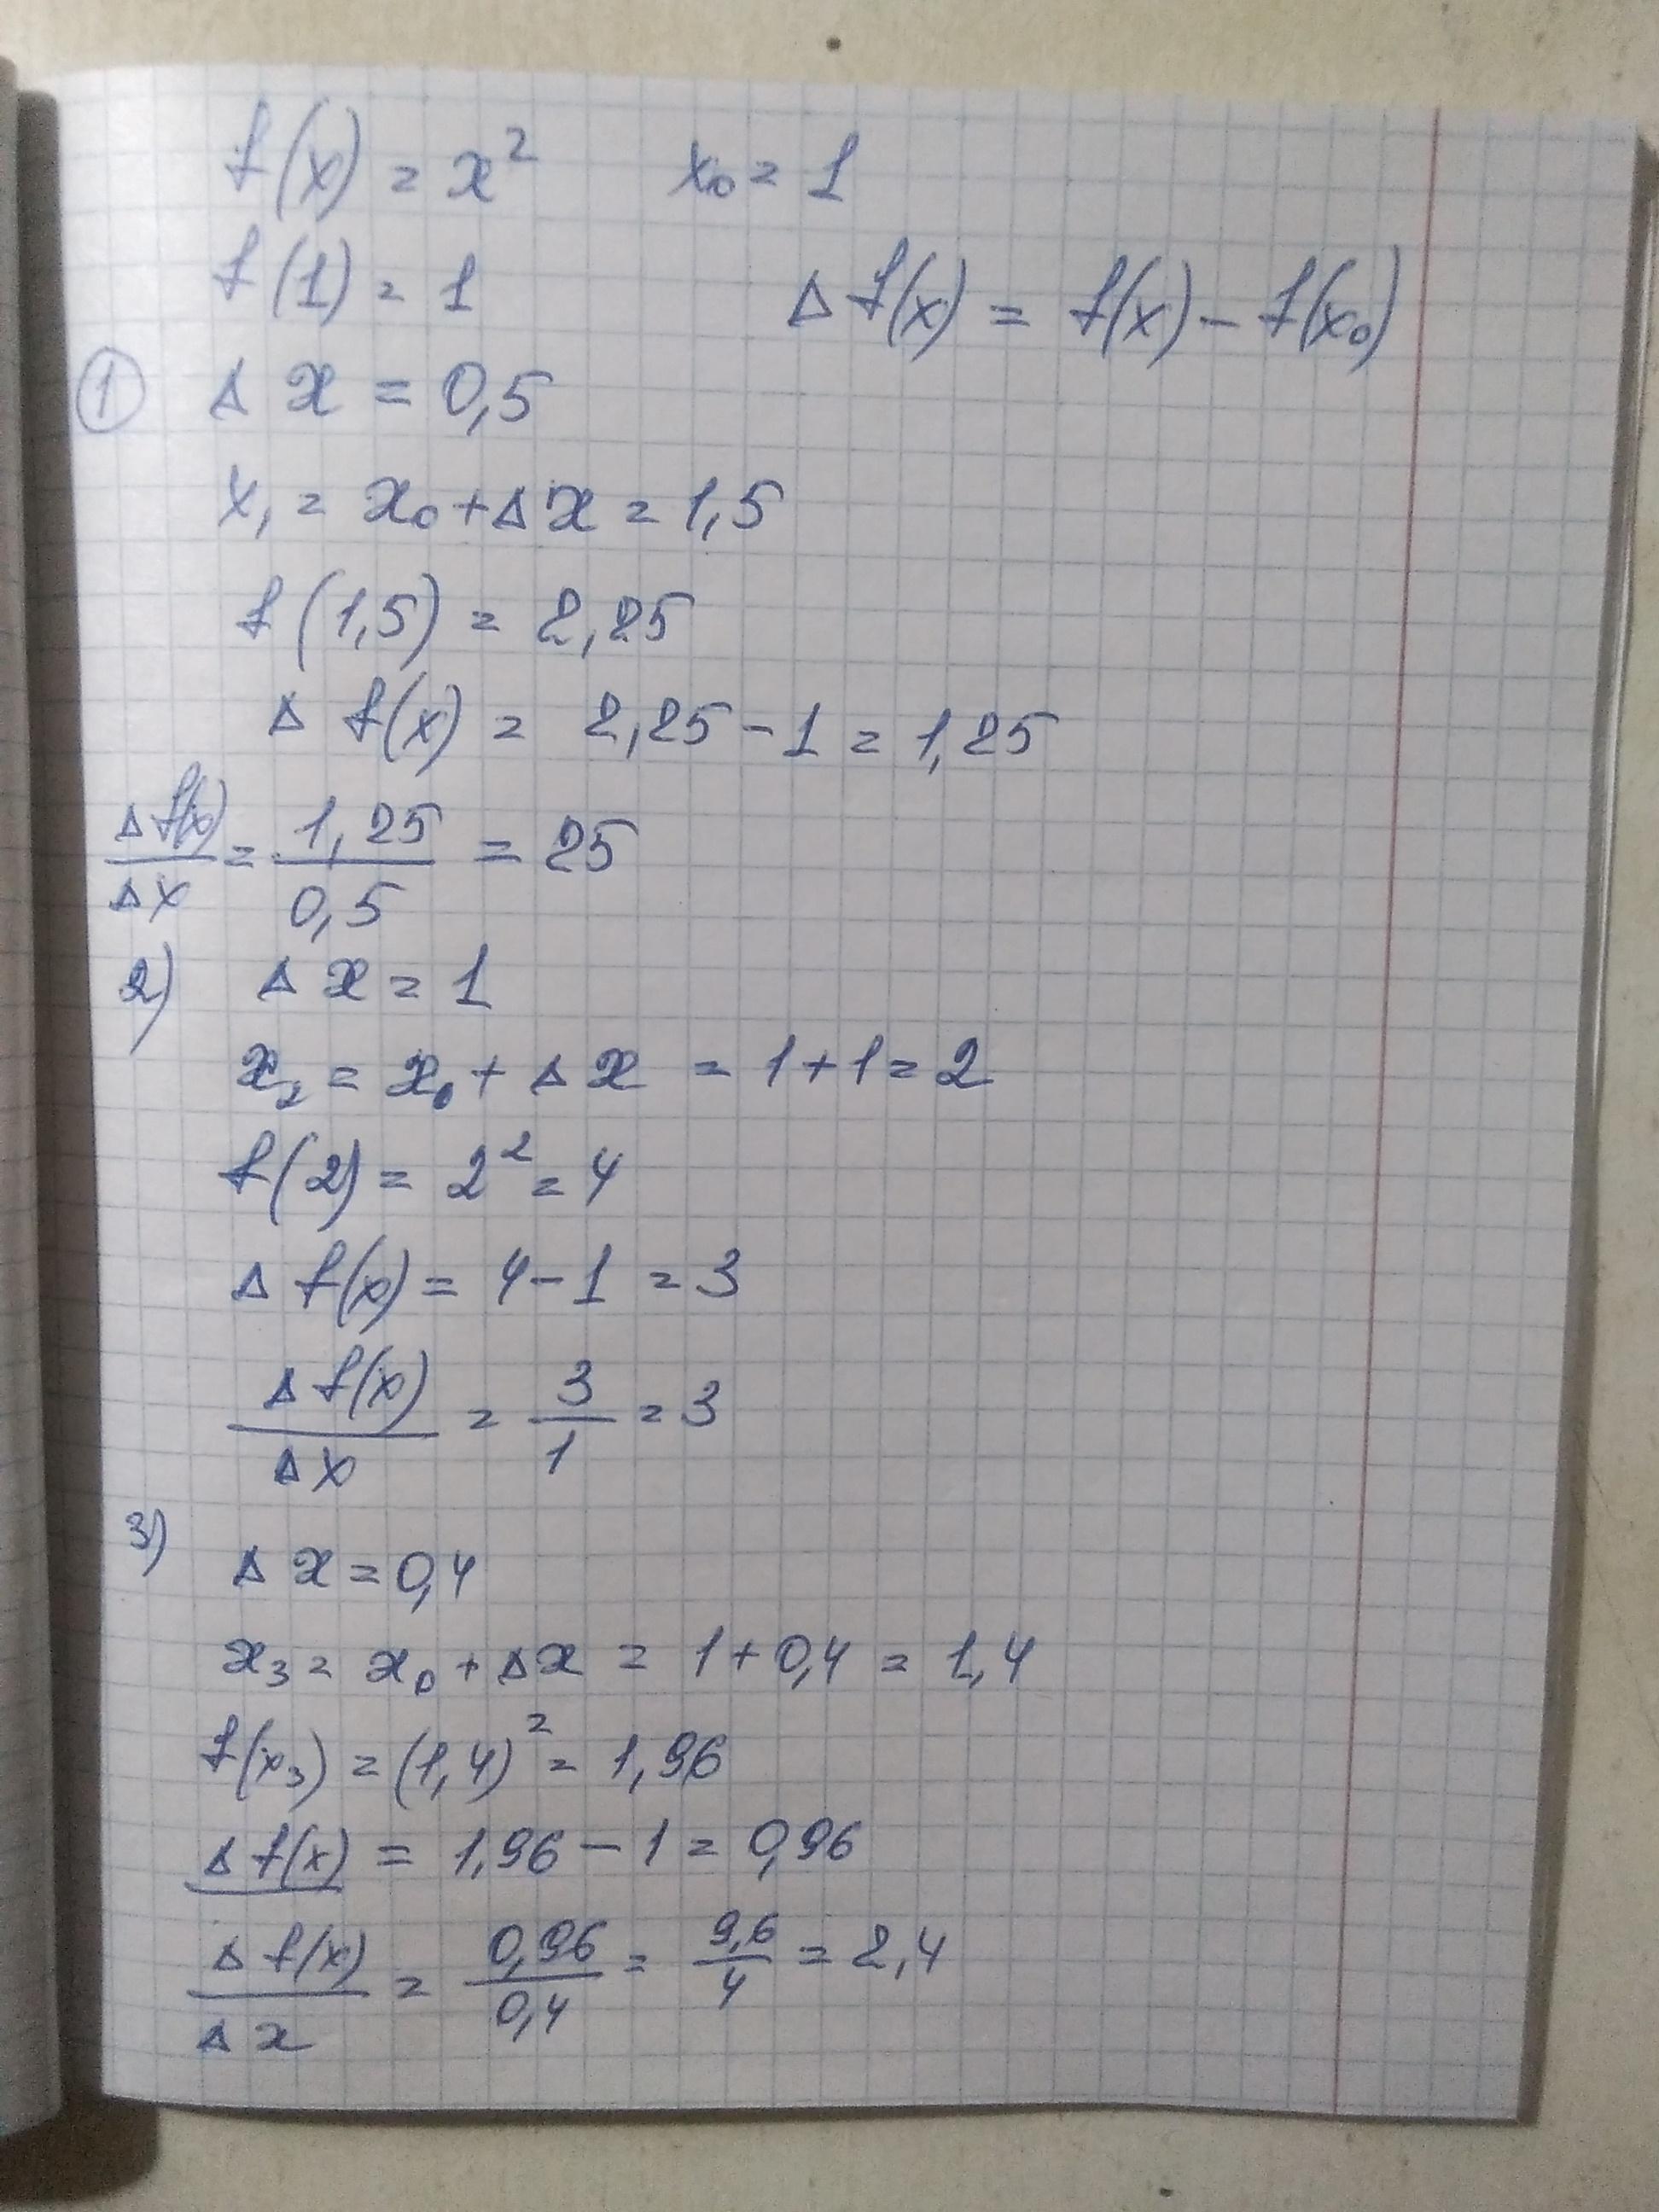 f(x) = x² x₀ = 1
f(1) = 1 Δ f(x) = f(x) - f(x₀)
① Δ x = 0,5
x₁ = x₀ + Δ x = 1,5
f(1,5) = 2,25
Δ f(x) = 2,25 - 1 = 1,25
Δ f(x) / Δ x = 1,25 / 0,5 = 25
2) Δ x = 1
x₂ = x₀ + Δ x = 1 + 1 = 2
f(2) = 2² = 4
Δ f(x) = 4 - 1 = 3
Δ f(x) / Δ x = 3 / 1 = 3
3) Δ x = 0,4
x₃ = x₀ + Δ x = 1 + 0,4 = 1,4
f(x₃) = (1,4)² = 1,96
Δ f(x) = 1,96 - 1 = 0,96
Δ f(x) / Δ x = 0,96 / 0,4 = 9,6 / 4 = 2,4